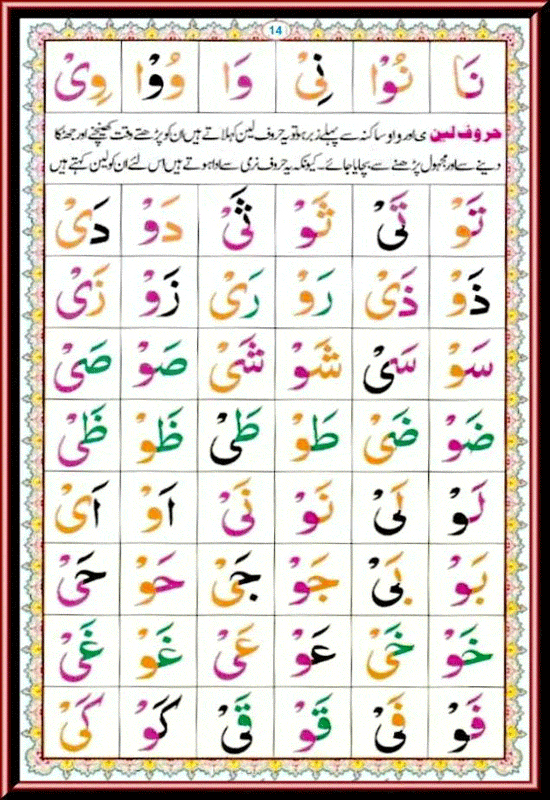 14
نَا نُوْا نِیْ وَا وُوْا وِیْ
حروف لین ی اور واؤ ساکنہ سے پہلے زبر ہو تو یہ حروف لین کہلاتے ہیں ان کو پڑھتے وقت کھینچنے اور جھٹکا
دینے سے اور مجہول پڑھنے سے بچایا جائے۔ کیونکہ یہ حروف نرمی سے ادا ہوتے ہیں اس لئے ان کو لین کہتے ہیں
تَوْ تَیْ ثَوْ ثَیْ دَوْ دَیْ
ذَوْ ذَیْ رَوْ رَیْ زَوْ زَیْ
سَوْ سَیْ شَوْ شَیْ صَوْ صَیْ
ضَوْ ضَیْ طَوْ طَیْ ظَوْ ظَیْ
لَوْ لَیْ نَوْ نَیْ اَوْ اَیْ
بَوْ بَیْ جَوْ جَیْ حَوْ حَیْ
خَوْ خَیْ عَوْ عَیْ غَوْ غَیْ
فَوْ فَیْ قَوْ قَیْ كَوْ كَیْ